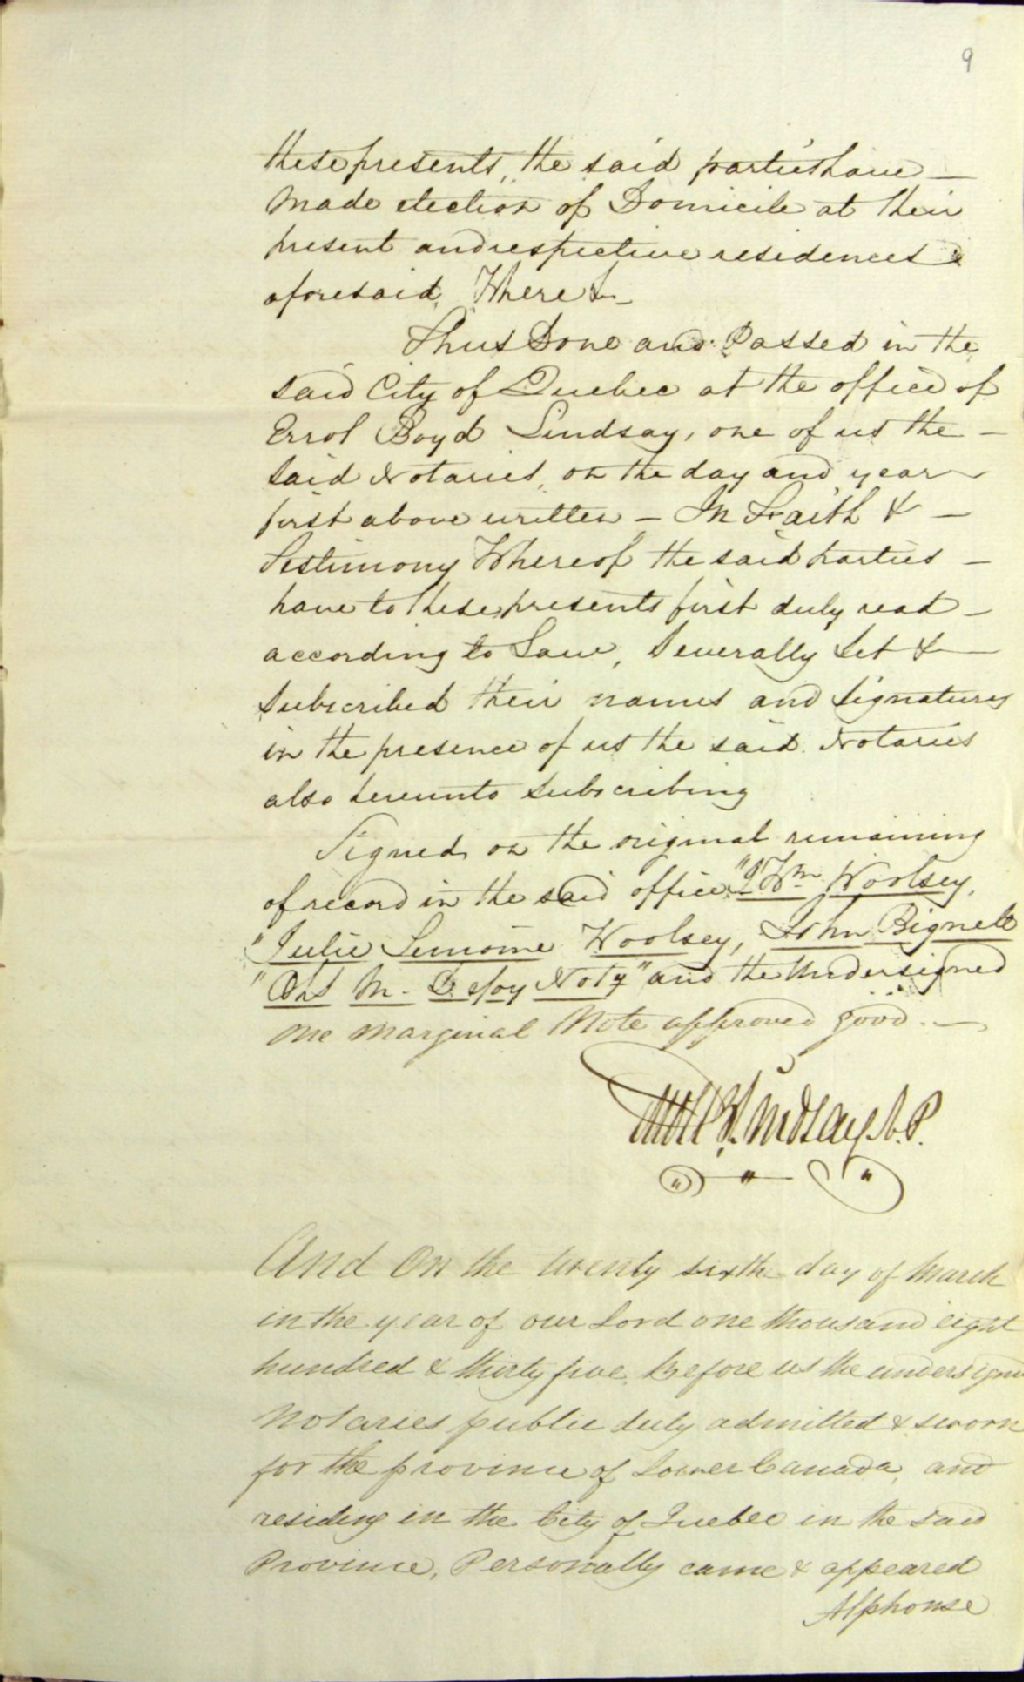 9
these presents, the said parties have —
made election of Domicile at their
present and respective residences
aforesaid, Where &c —
Thus Done and Passed in the
said City of Quebec at the office of
Errol Boyd Lindsay, one of us the —
said Notaries, on the day and year
first above written — In Faith & —
Testimony Whereof the said parties —
have to these presents first duly read —
according to Law, Severally Set & —
Subscribed their names and Signatures
in the presence of us the said Notaries
also hereunto Subscribing
Signed on the original remaining
of record in the said office "J Wm Woolsey,
"Julie Lemoine Woolsey, John Bignell
" M. Defoy Noty" and the Undersigned
One Marginal Note approved good. —
Errol B. Lindsay N.P.
And On the twenty sixth day of March
in the year of our Lord one thousand eight
hundred & thirty five, Before us the undersigned
Notaries public duly admitted & sworn
for the province of Lower Canada, and
residing in the City of Quebec in the said
Province, Personally came & appeared
Alphonse